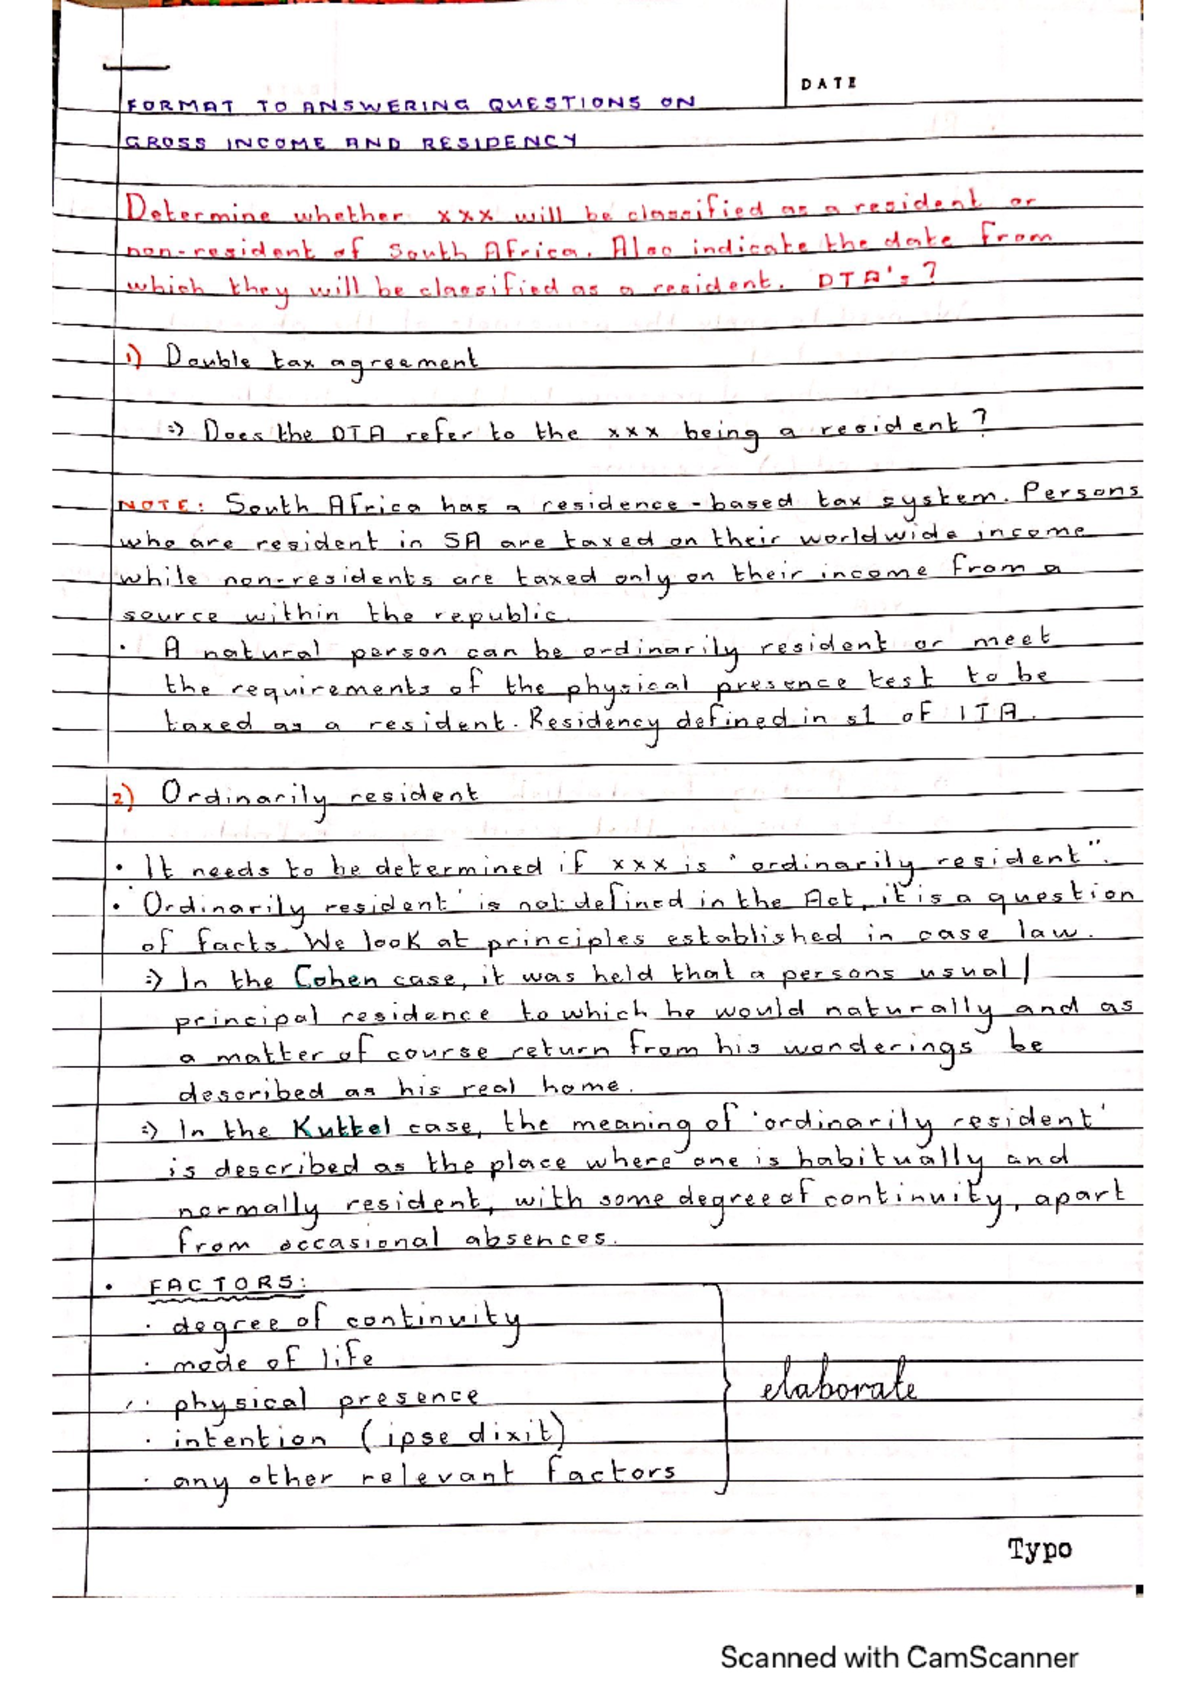 DATE
FORMAT TO ANSWERING QUESTIONS ON
GROSS INCOME AND RESIDENCY
Determine whether xxx will be classified as a resident or
non-resident of South Africa. Also indicate the date from
which they will be classified as a resident. DTA's?
1) Double tax agreement
=> Does the DTA refer to the xxx being a resident?
NOTE: South Africa has a residence-based tax system. Persons
who are resident in SA are taxed on their worldwide income
while non-residents are taxed only on their income from a
source within the republic.
• A natural person can be ordinarily resident or meet
the requirements of the physical presence test to be
taxed as a resident. Residency defined in s1 of ITA.
2) Ordinarily resident
• It needs to be determined if xxx is 'ordinarily resident".
• 'Ordinarily resident' is not defined in the Act, it is a question
of facts. We look at principles established in case law.
=> In the Cohen case, it was held that a persons usual/
principal residence to which he would naturally and as
a matter of course return from his wonderings be
described as his real home.
=> In the Kuttel case, the meaning of 'ordinarily resident'
is described as the place where one is habitually and
normally resident, with some degree of continuity, apart
from occasional absences.
• FACTORS:
· degree of continuity
· mode of life
· physical presence
elaborate
· intention (ipse dixit)
· any other relevant factors
Typo
Scanned with CamScanner